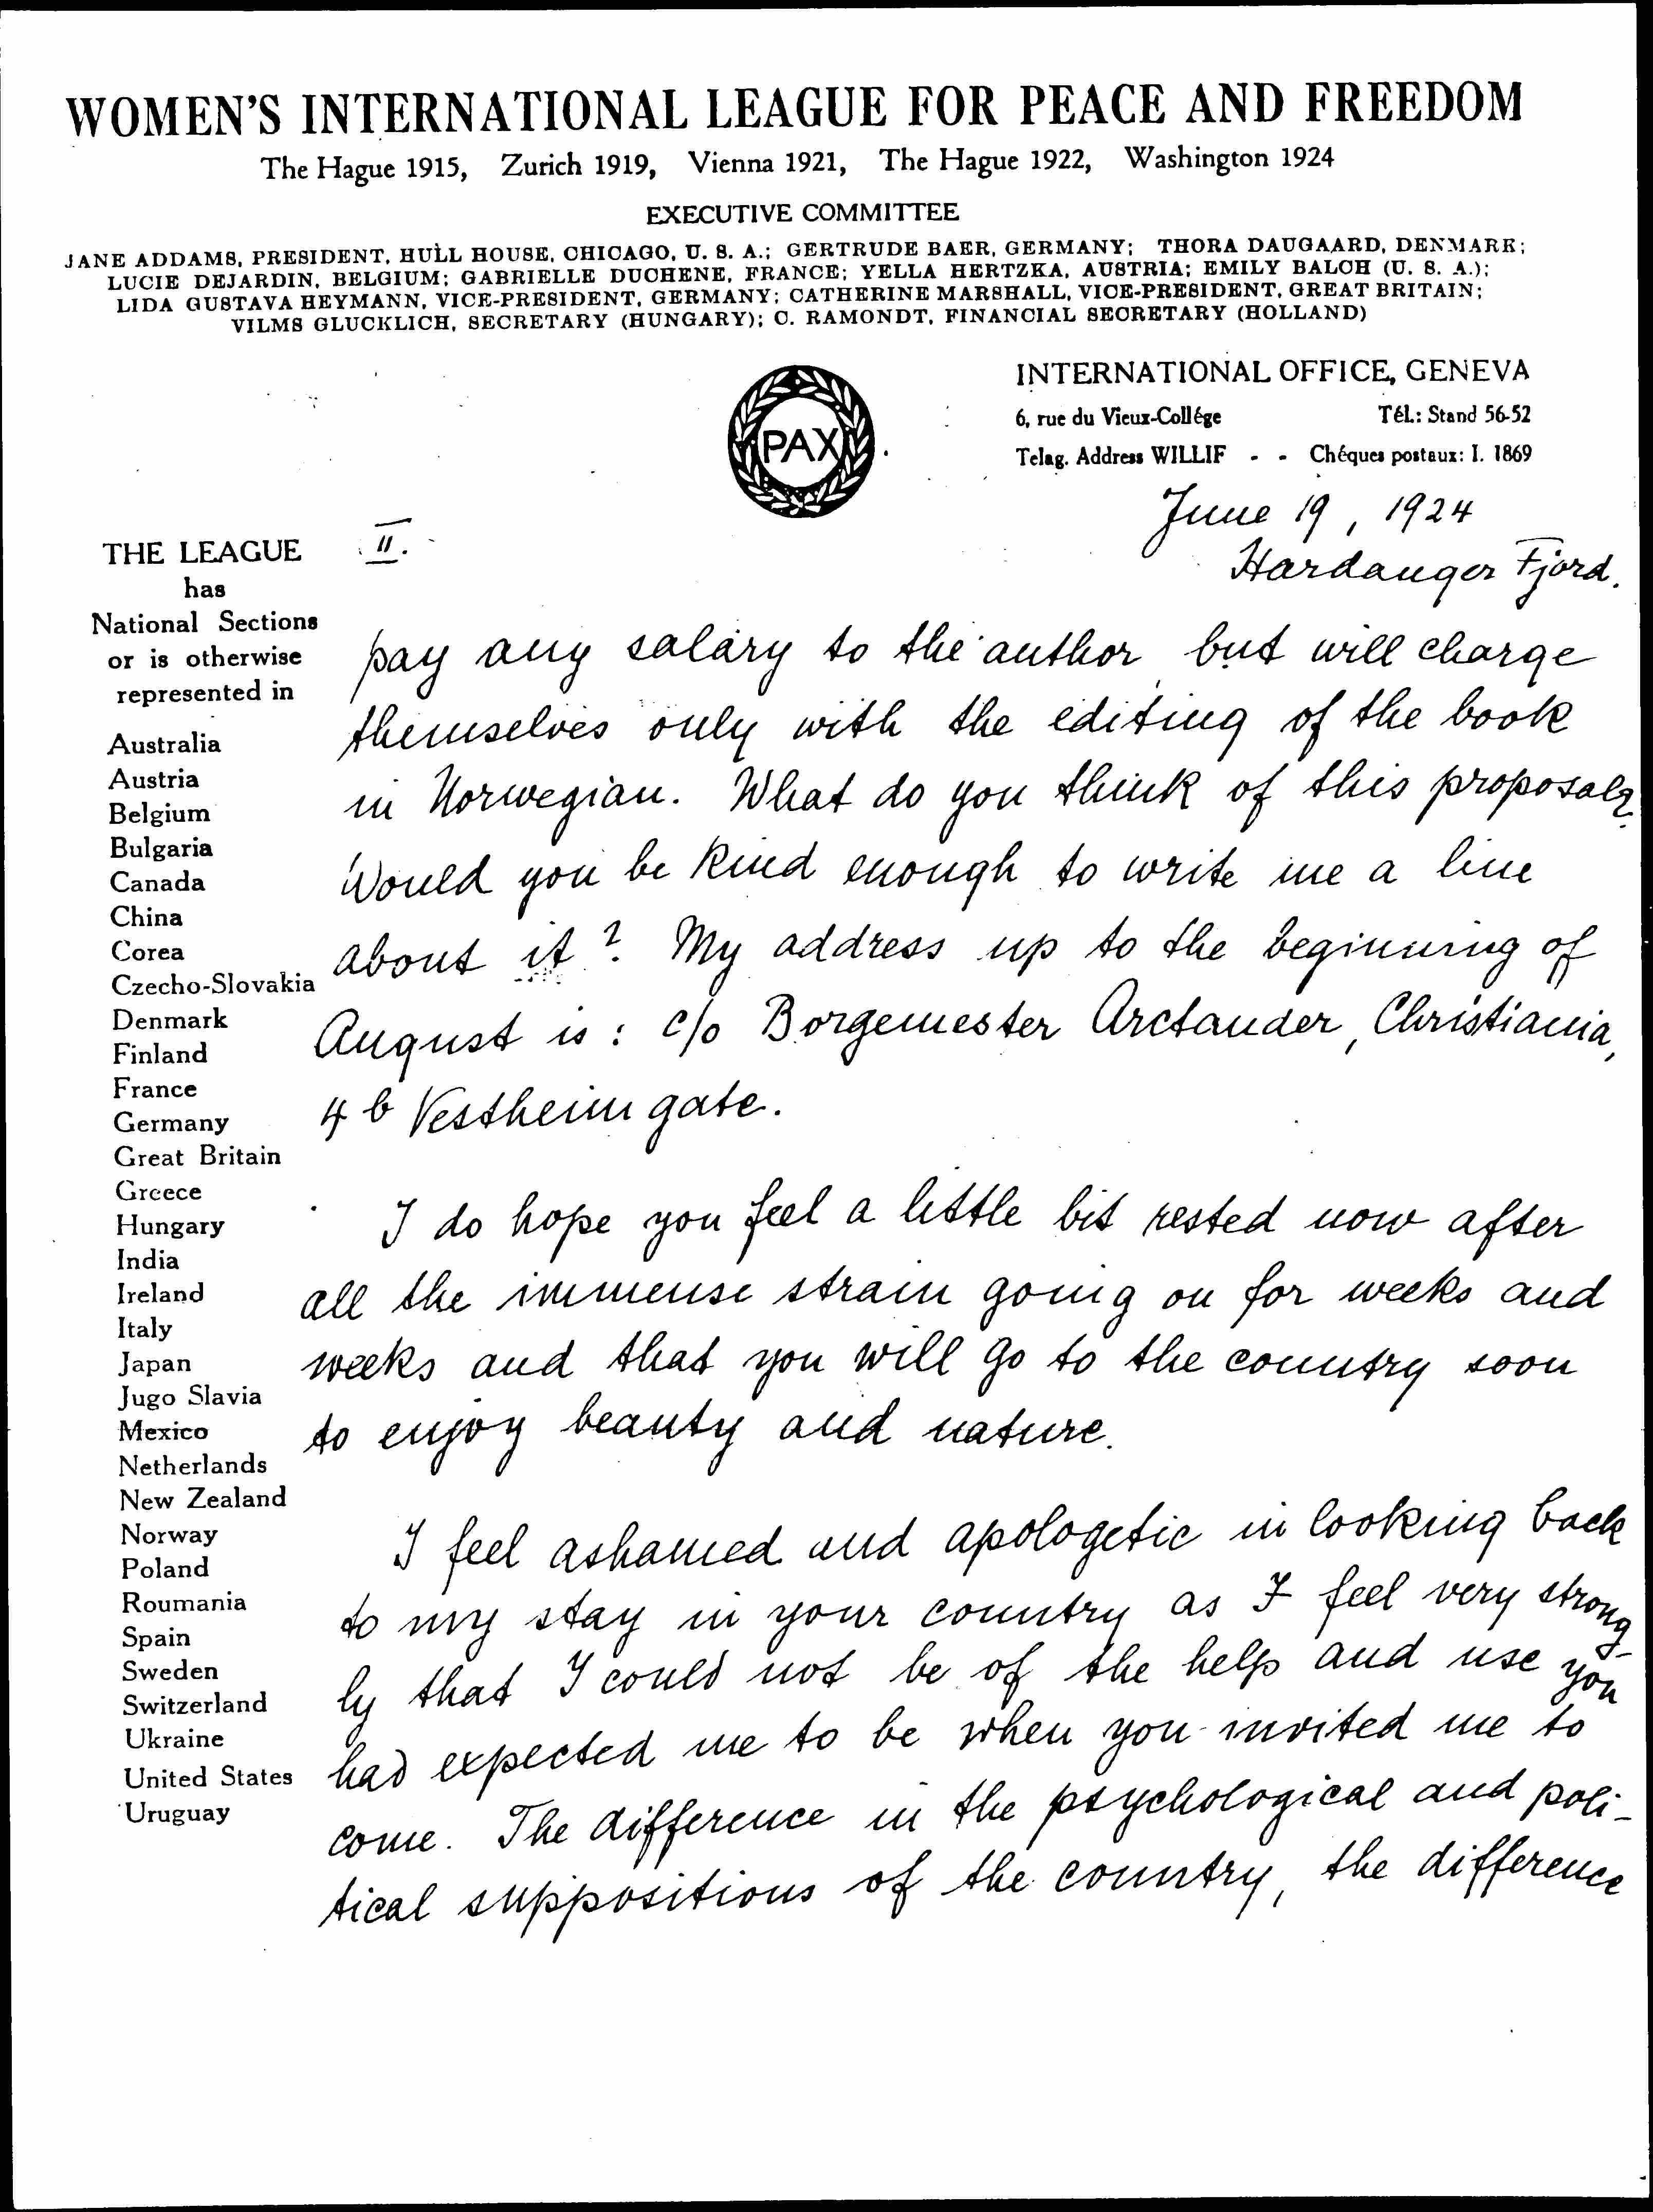 WOMEN'S INTERNATIONAL LEAGUE FOR PEACE AND FREEDOM
The Hague 1915, Zurich 1919, Vienna 1921, The Hague 1922, Washington 1924
EXECUTIVE COMMITTEE
JANE ADDAMS, PRESIDENT, HULL HOUSE, CHICAGO, U. S. A.; GERTRUDE BAER, GERMANY; THORA DAUGAARD, DENMARK;
LUCIE DEJARDIN, BELGIUM; GABRIELLE DUCHENE, FRANCE; YELLA HERTZKA, AUSTRIA; EMILY BALCH (U. S. A.);
LIDA GUSTAVA HEYMANN, VICE-PRESIDENT, GERMANY; CATHERINE MARSHALL, VICE-PRESIDENT, GREAT BRITAIN;
VILMS GLUCKLICH, SECRETARY (HUNGARY); C. RAMONDT, FINANCIAL SECRETARY (HOLLAND)
PAX
INTERNATIONAL OFFICE, GENEVA
6, rue du Vieux-Collége Tél.: Stand 56-52
Telag. Address WILLIF - - Chéques postaux: I. 1869
June 19, 1924
Hardanger Fjord.
THE LEAGUE
has
National Sections
or is otherwise
represented in
Australia
Austria
Belgium
Bulgaria
Canada
China
Corea
Czecho-Slovakia
Denmark
Finland
France
Germany
Great Britain
Greece
Hungary
India
Ireland
Italy
Japan
Jugo Slavia
Mexico
Netherlands
New Zealand
Norway
Poland
Roumania
Spain
Sweden
Switzerland
Ukraine
United States
Uruguay
II.
pay any salary to the author, but will charge
themselves only with the editing of the book
in Norwegian. What do you think of this proposal?
Would you be kind enough to write me a line
about it? My address up to the beginning of
August is: c/o Borgemester Arctander, Christiania,
4 b Vestheim gate.
I do hope you feel a little bit rested now after
all the immense strain going on for weeks and
weeks and that you will go to the country soon
to enjoy beauty and nature.
I feel ashamed and apologetic in looking back
to my stay in your country as I feel very strong-
ly that I could not be of the help and use you
had expected me to be when you invited me to
come. The difference in the psychological and poli-
tical suppositions of the country, the difference